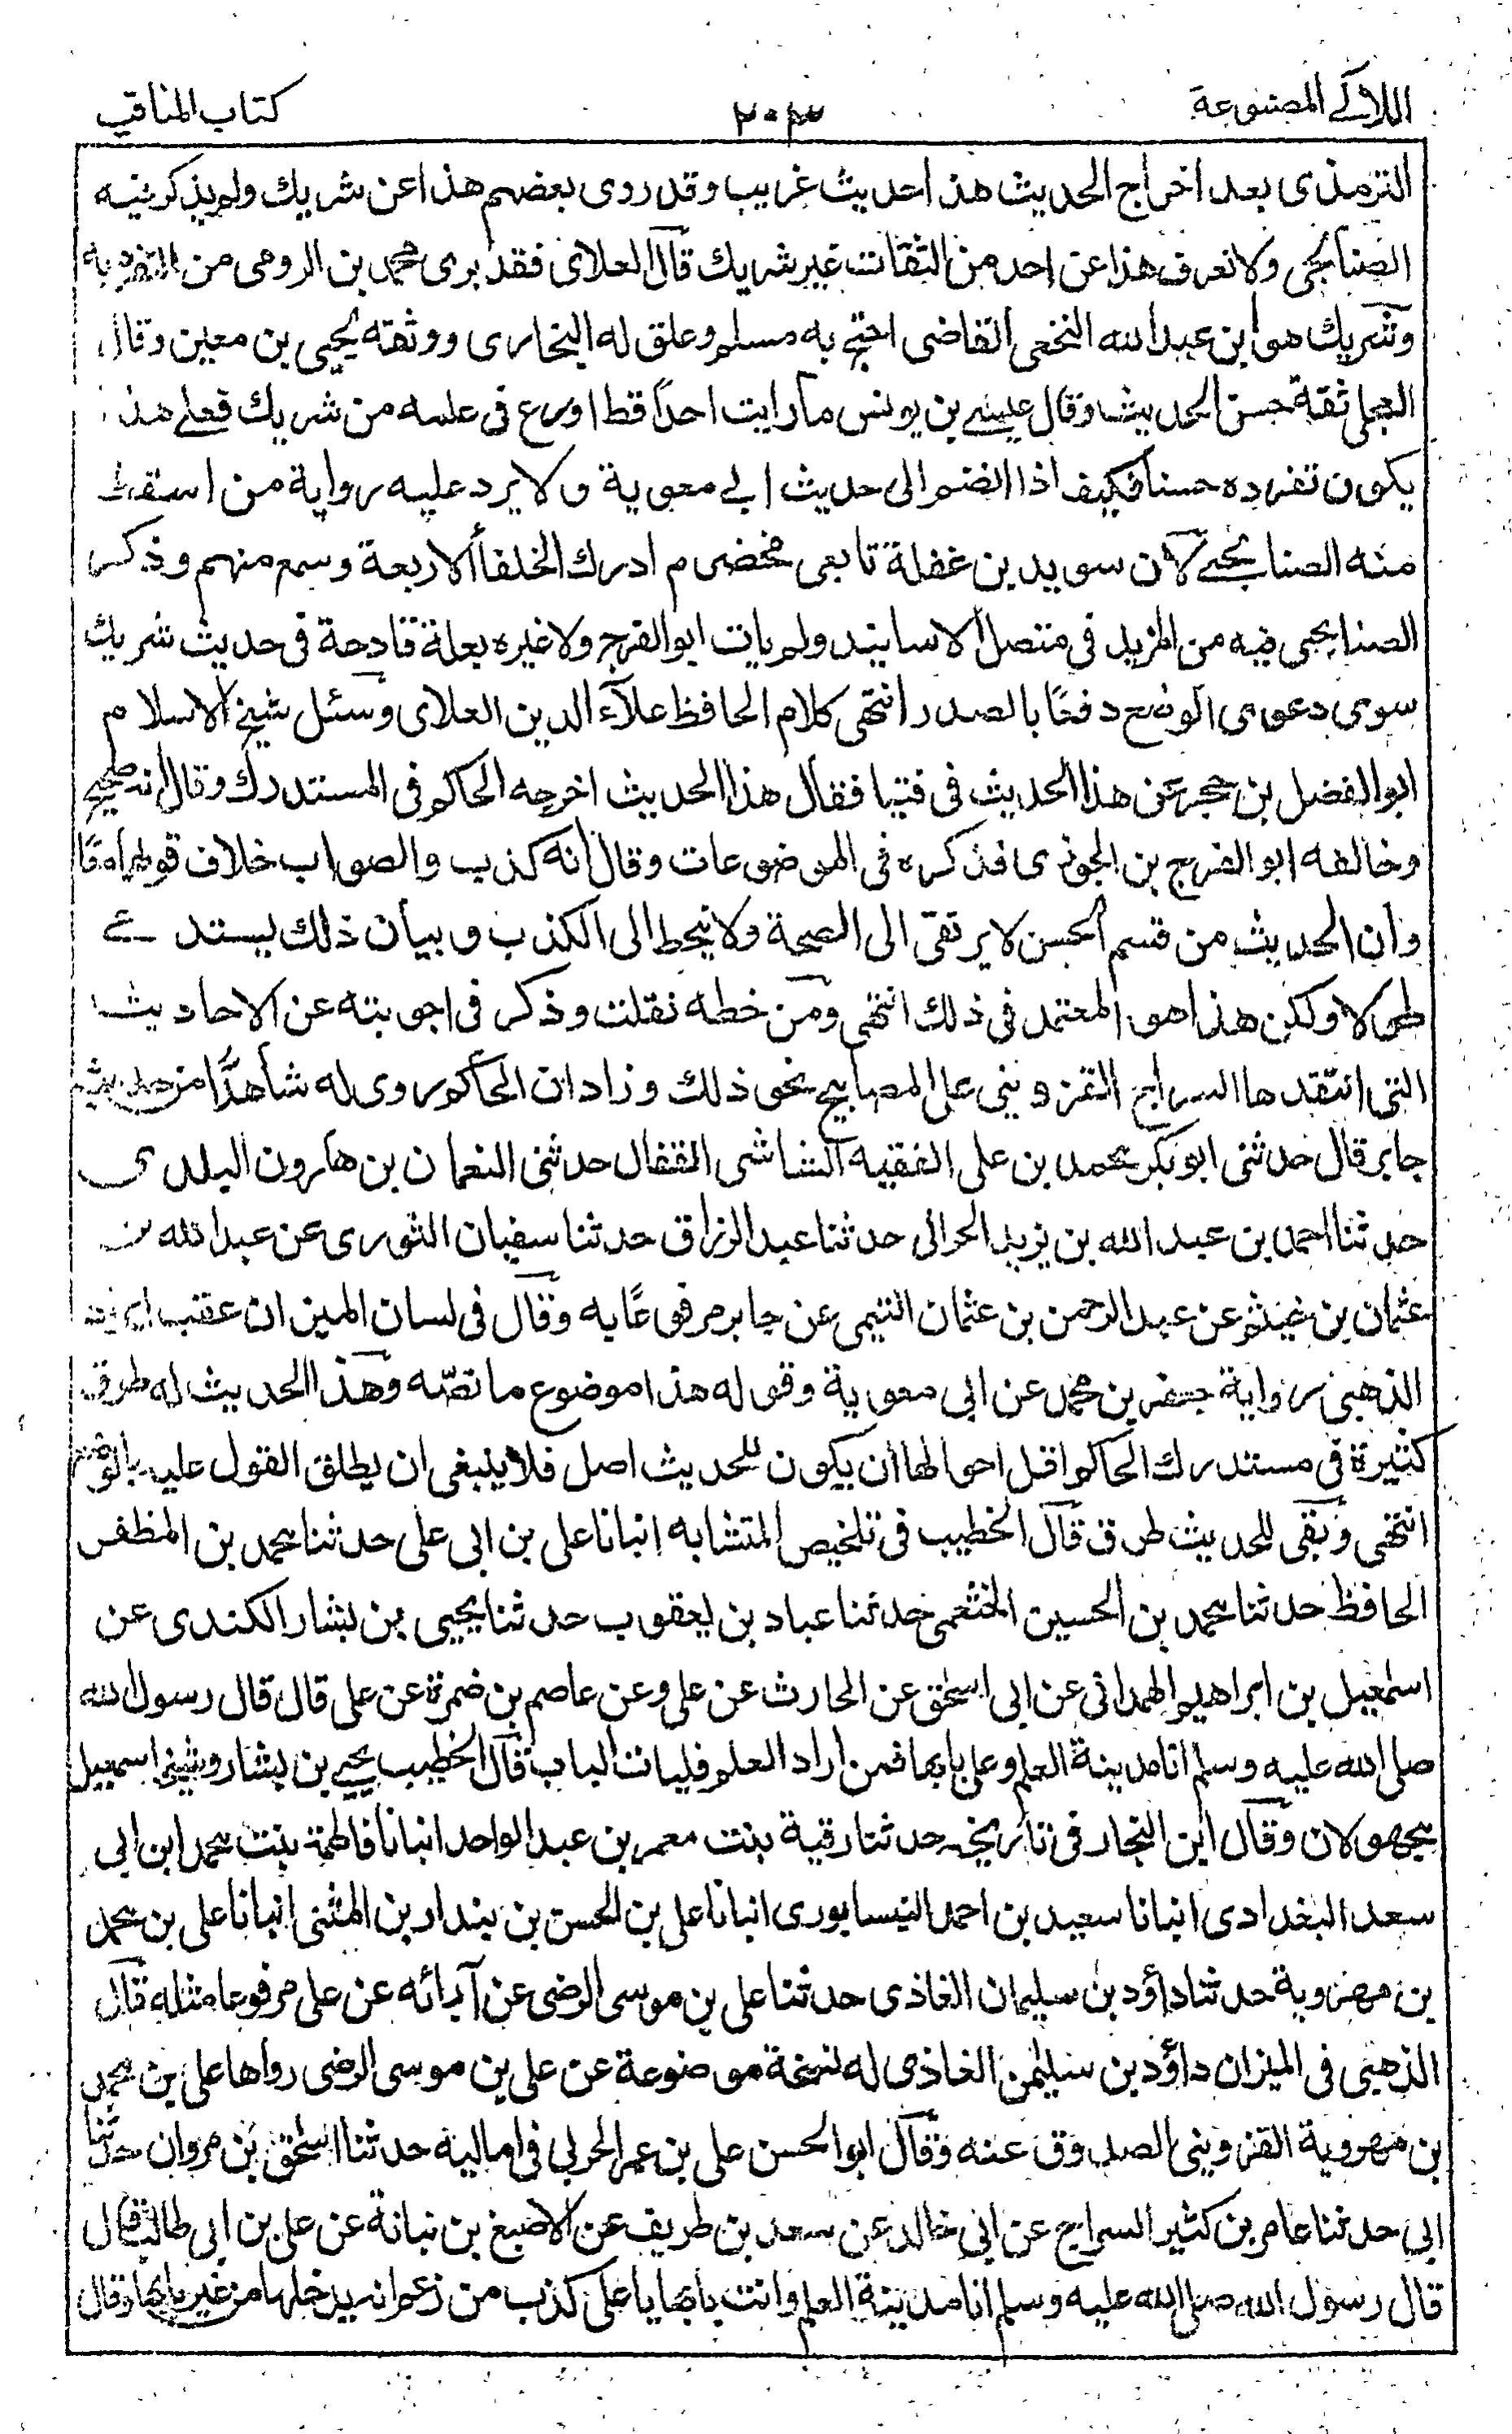 اللآلی المصنوعة
كتاب المناقب
الترمذى بعد اخراج الحديث هذا حديث غريب وقد روى بعضهم هذا عن شريك ولم يذكر فيه
الصنابحى ولا نعرف هذا عن احد من الثقات غير شريك قال العلائى فقد برى محمد بن الرومى من التفرد به
وشريك هو ابن عبد الله النخعى القاضى احتج به مسلم وعلق له البخارى ووثقه يحيى بن معين وقال
العجلى ثقة حسن الحديث وقال عيسے بن يونس ما رايت احدًا قط اورع فى علمه من شريك فعلے هذا
يكون تفرده حسنا فكيف اذا انضم الى حديث ابے معوية ولا يرد عليه رواية من اسقط
منه الصنابحے لان سويد بن غفلة تابعى مخضرم ادرك الخلفأ الاربعة وسمع منهم وذكر
الصنابحى فيه من المزيد فى متصل الاسانيد ولم يات ابو الفرج ولا غيره بعلة قادحة فى حديث شريك
سوى دعوى الوضع دفعًا بالصدر انتهى كلام الحافظ علآء الدين العلائى وسئل شيخ الاسلام
ابو الفضل بن حجر عن هذا الحديث فى فتيا فقال هذا الحديث اخرجه الحاكم فى المستدرك وقال انه صحيح
وخالفه ابو الفرج بن الجوزى فذكره فى الموضوعات وقال انه كذب والصواب خلاف قولهما معًا
وان الحديث من قسم الحسن لا يرتقى الى الصحة ولا ينحط الى الكذب وبيان ذلك يستدعے
طولا ولكن هذا هو المعتمد فى ذلك انتهى ومن خطه نقلت وذكر فى اجوبته عن الاحاديث
التى انتقدها السراج القزوينى على المصابيح نحو ذلك وزاد ان الحاكم روى له شاهدًا من حديث
جابر قال حدثنى ابو بكر محمد بن على الفقيه الشاشى القفال حدثنى النعمان بن هارون البلدى
حدثنا احمد بن عبد الله بن يزيد الحرانى حدثنا عبد الرزاق حدثنا سفيان الثورى عن عبد الله بن
عثمان بن خيثم عن عبد الرحمن بن عثمان التيمى عن جابر مرفوعًا به وقال فى لسان الميزان عقب ايراد
الذهبى رواية جعفر بن محمد عن ابى معوية وقوله هذا موضوع ما نصّه وهذا الحديث له طرق
كثيرة فى مستدرك الحاكم اقل احوالها ان يكون للحديث اصل فلا ينبغى ان يطلق القول عليه بالوضع
انتهى وبقى للحديث طرق قال الخطيب فى تلخيص المتشابه انبانا على بن ابى على حدثنا محمد بن المظفر
الحافظ حدثنا محمد بن الحسين الخثعمى حدثنا عباد بن يعقوب حدثنا يحيى بن بشار الكندى عن
اسمعيل بن ابراهيم الهمدانى عن ابى اسحق عن الحارث عن على وعن عاصم بن ضمرة عن على قال قال رسول الله
صلى الله عليه وسلم انا مدينة العلم وعلى بابها فمن اراد العلم فليات الباب قال الخطيب يحيے بن بشار وشيخه اسمعيل
مجهولان وقال ابن النجار فى تاريخه حدثتنا رقية بنت معمر بن عبد الواحد انبانا فاطمة بنت محمد ابن ابى
سعد البغدادى انبانا سعيد بن احمد النيسابورى انبانا على بن الحسن بن بندار بن المثنى انبانا على بن محمد
بن مهروية حدثنا داؤد بن سليمان الغازى حدثنا على بن موسى الرضى عن آبائه عن على مرفوعا مثله قال
الذهبى فى الميزان داؤد بن سليمن الغاذى له نسخة موضوعة عن على بن موسى الرضى رواها على بن محمد
بن مهروية القزوينى الصدوق عنه وقال ابو الحسن على بن عمر الحربى فى اماليه حدثنا اسحق بن مروان حدثنا
ابى حدثنا عامر بن كثير السراج عن ابى خالد عن سعد بن طريف عن الاصبغ بن نباتة عن على بن ابى طالب قال
قال رسول الله صلى الله عليه وسلم انا مدينة العلم وانت بابها يا على كذب من زعم انه يدخلها من غير بابها وقال